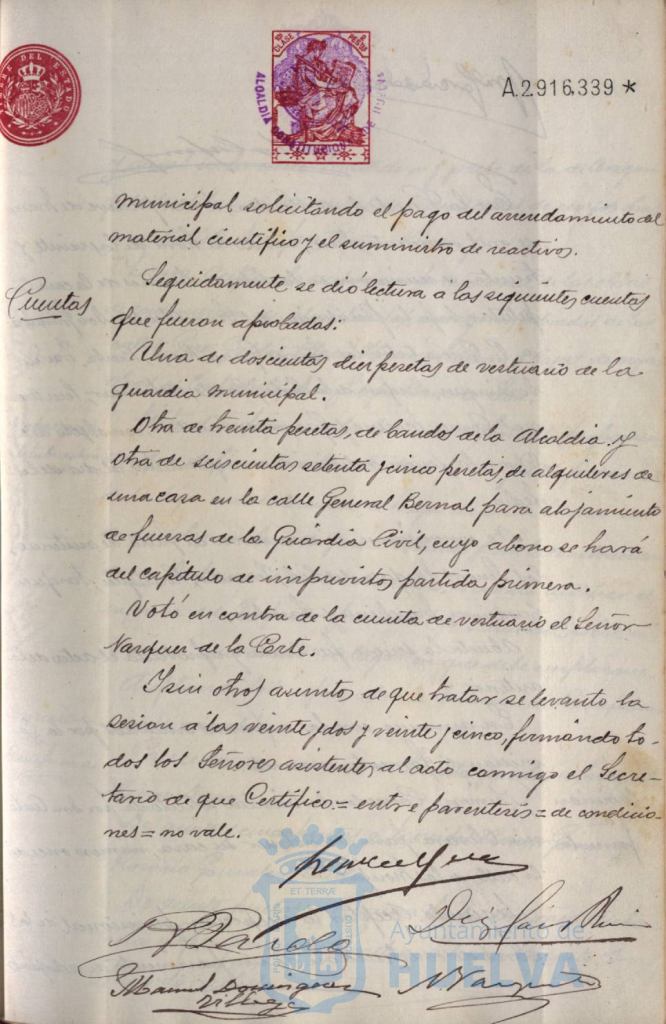 TIMBRE DEL ESTADO
CLASE
PESETAS
ALCALDIA CONSTITUCIONAL DE HUELVA
A.2.916.339 *
municipal solicitando el pago del arrendamiento del
material científico y el suministro de reactivos.
Cuentas
Seguidamente se dió lectura á las siguientes cuentas
que fueron aprobadas:
Una de doscientas diez pesetas de vestuario de la
guardia municipal.
Otra de treinta pesetas, de bandos de la Alcaldia y
otra de seiscientas setenta y cinco pesetas, de alquileres de
una casa en la calle General Bernal para alojamiento
de fuerzas de la Guardia Civil, cuyo abono se hará
del capitulo de imprevistos partida primera.
Votó en contra de la cuenta de vestuario el Señor
Vazquez de la Corte.
Y sin otros asuntos de que tratar se levantó la
sesion á las veinte y dos y veinte y cinco, firmando to-
dos los Señores asistentes al acto conmigo el Secre-
tario de que Certifico.= entre parentesis = de condicio-
nes = no vale.
ET TERRÆ
Manuel Dominguez
N Vazquez
Ayuntamiento de
HUELVA